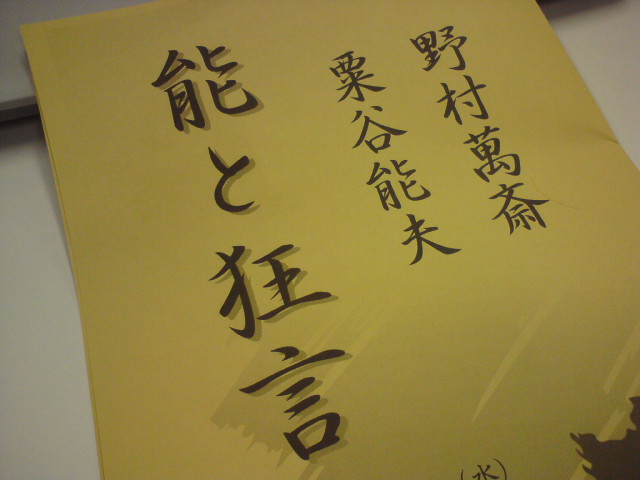 野村萬斎
粟谷能夫
能と狂言
(水)